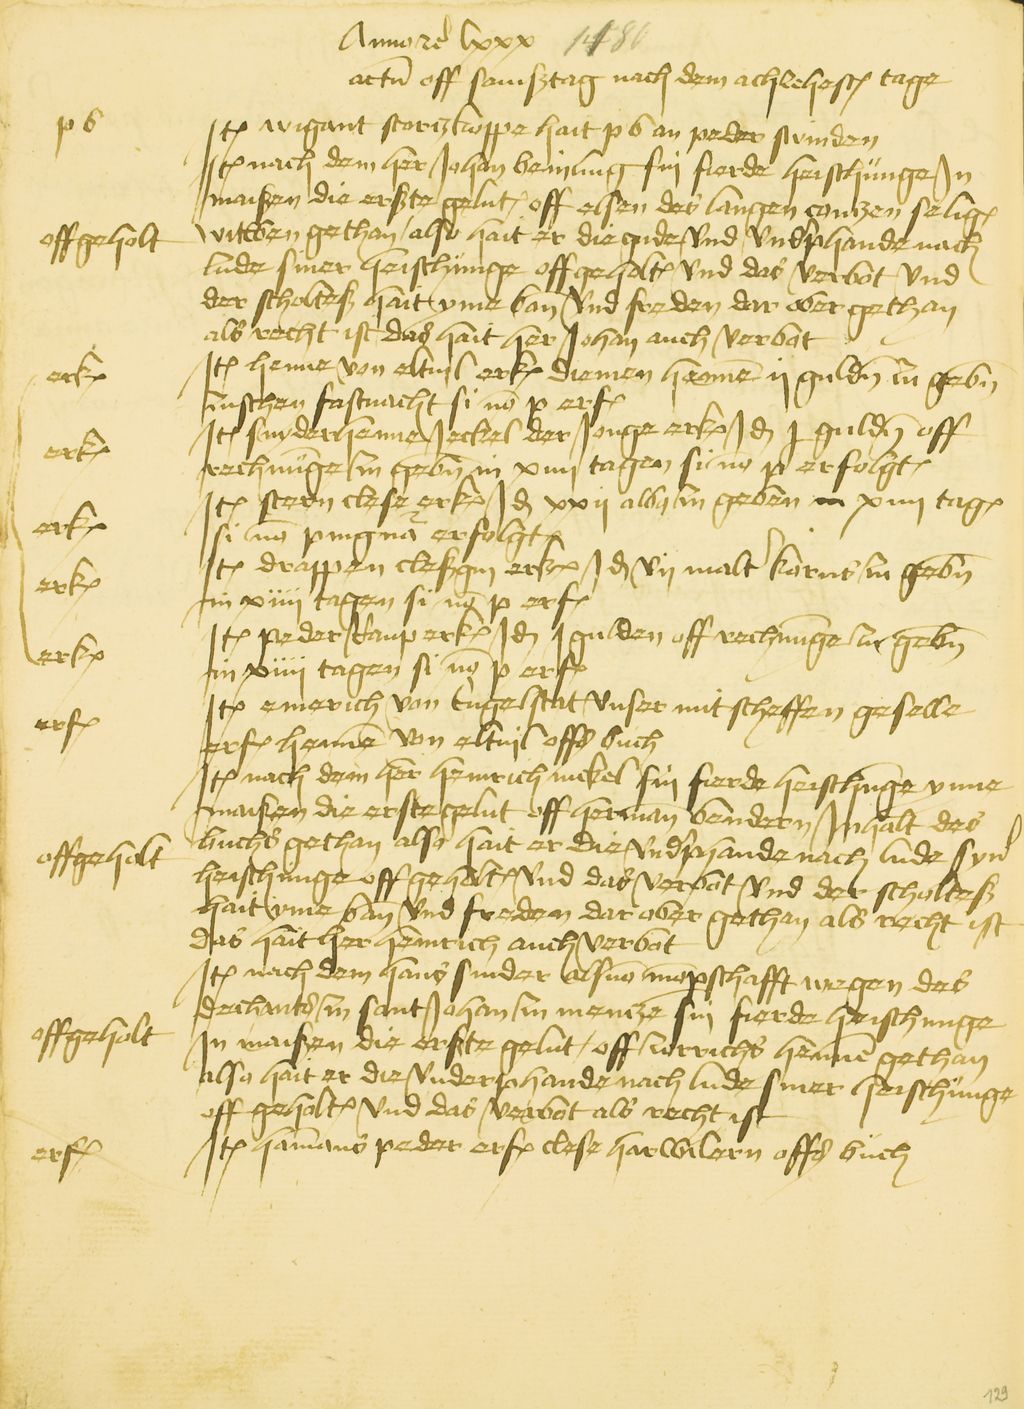 Anno etc lxxx 1480
actum off samsztag nach dem achzehesten tage
p b
Item wigant stortzkoppe hait p b an peder swinden
Item nach dem her Johan beinling sin fierde heischunge In
maißen die erßte gelut off elsen des langen contzen seligen
offgeholt
witwen gethan also hait er die gude vnd vnderphande nach
lude siner heischunge offgeholt vnd das verbot vnd
der scholteß hait yme ban vnd freden dar ober gethan
als recht ist das hait her Johan auch verbot
erk
Item henne von eltuil erk diemen henne ij gulden zu geben
zuschen fastnacht si non p erf
erk
Item snyderhenne Jeckel der Jonge erk Id j gulden off
rechnunge zu geben in xiiii tagen si non p erfolgt
erk
Item stern clese erk Id xxij albus zu geben in xiiii tagen
si non pingnora erfolgt
erk
Item drappen cleßgin erk Id vij malter korns zu geben
in xiiii tagen si non p erf
erk
Item peder raup erk Id j gulden off rechnunge zu geben
in xiiii tagen si non p erf
erf
Item emerich von engelstat vnser mit scheffen geselle
erf henne von eltuil offs buch
Item nach dem her heinrich nickel sin fierde heischunge ynne
maißen die erste gelut off herman bendern Inhalt des
offgeholt
buchs gethan also hait er die vnderphande nach lude syner
heischunge offgeholt vnd das verbot vnd der scholteß
hait yme ban vnd freden dar ober gethan als recht ist
das hait her heinrich auch verbot
Item nach dem hans snider als von momperschafft wegen des
dechants zu sant Johan zu mentze sin fierde heischunge
offgeholt
In maißen die erßte gelut off winrichs henne gethan
also hait er die vnderphande nach lude siner heischunge
off geholt vnd das verbot als recht ist
erf
Item hamans peder erf clese harwilern offs buch
129